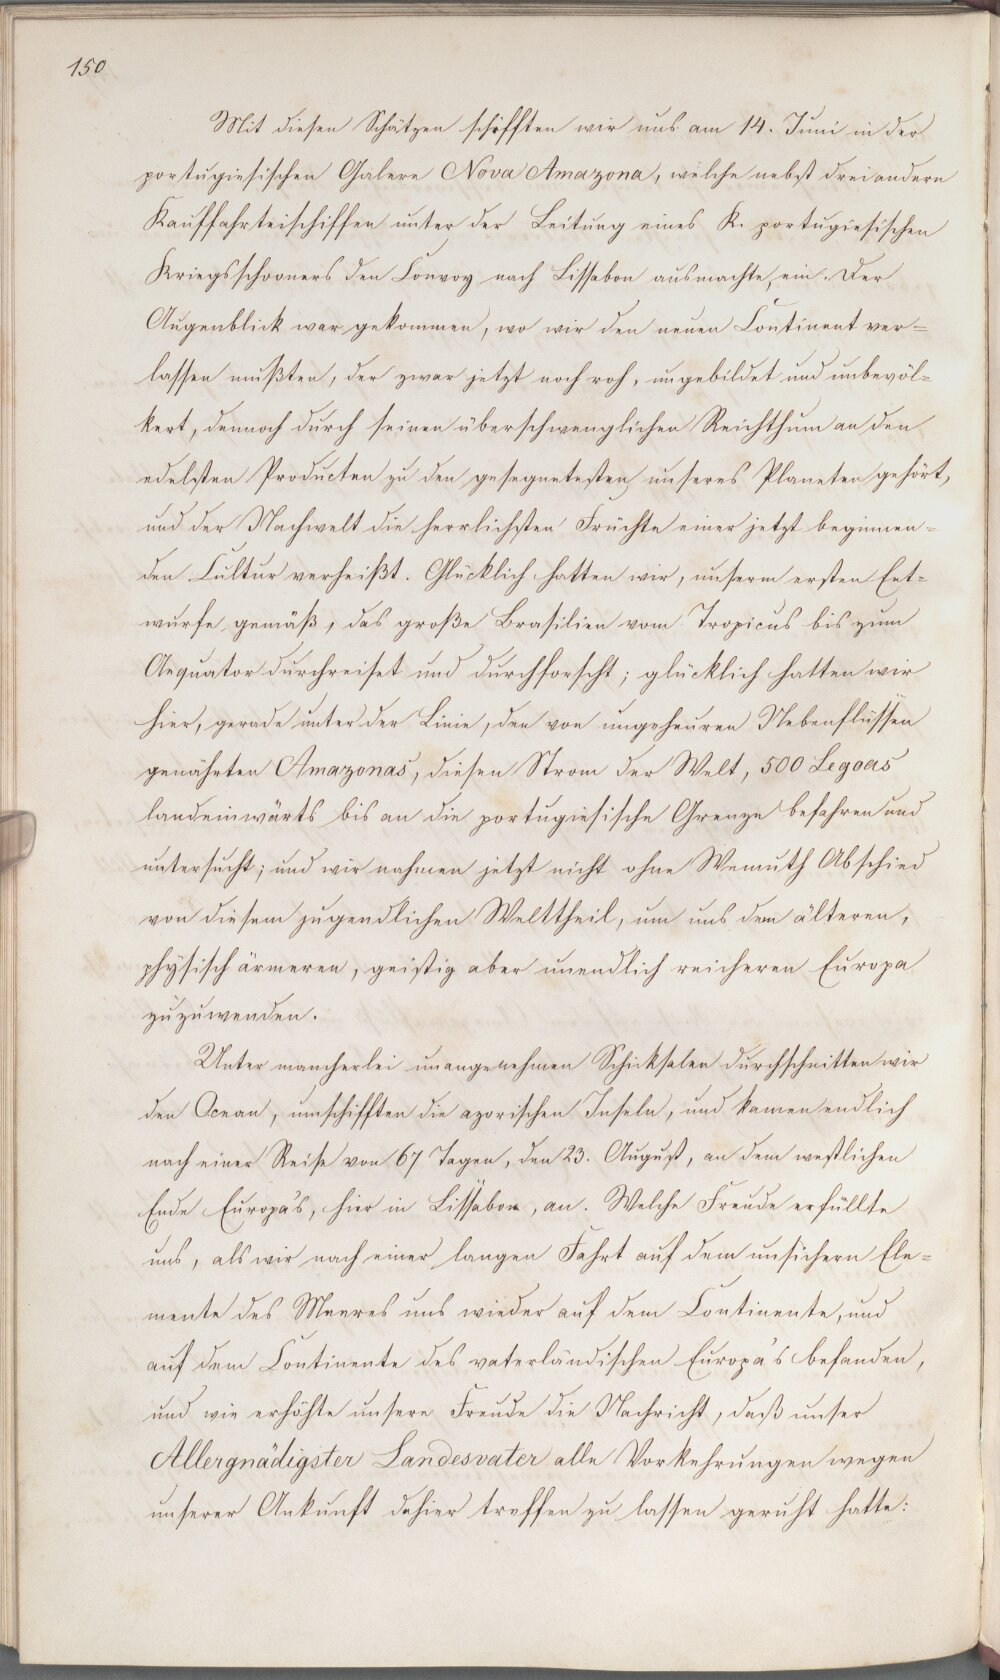 150
Mit diesen Schätzen schifften wir uns am 14. Juni in der
portugiesischen Galere Nova Amazona, welche nebst drei andern
Kauffahrteischiffen unter der Leitung eines K. portugiesischen
Kriegsschooners den Convoy nach Lissabon ausmachte, ein. Der
Augenblick war gekommen, wo wir den neuen Continent ver=
lassen mußten, der zwar jetzt noch roh, ungebildet und unbevöl=
kert, dennoch durch seinen überschwenglichen Reichthum an den
edelsten Producten zu den gesegnetesten unseres Planeten gehört,
und der Nachwelt die herrlichsten Früchte einer jetzt beginnen=
den Cultur verheißt. Glücklich hatten wir, unserm ersten Ent=
wurfe gemäß, das große Brasilien vom Tropicus bis zum
Aequator durchreiset und durchforscht; glücklich hatten wir
hier, gerade unter der Linie, den von ungeheuren Nebenflüssen
genährten Amazonas, diesen Strom der Welt, 500 Legoas
landeinwärts bis an die portugiesische Grenze befahren und
untersucht; und wir nahmen jetzt nicht ohne Wemuth Abschied
von diesem jugendlichen Welttheil, um uns dem älteren,
physisch ärmeren, geistig aber unendlich reicheren Europa
zuzuwenden.
Unter mancherlei unangenehmen Schicksalen durchschnitten wir
den Ocean, umschifften die azorischen Inseln, und kamen endlich
nach einer Reise von 67 Tagen, den 23. August, an dem westlichen
Ende Europa's, hier in Lissabon, an. Welche Freude erfüllte
uns, als wir nach einer langen Fahrt auf dem unsichern Ele=
mente des Meeres uns wieder auf dem Continente, und
auf dem Continente des vaterländischen Europa's befanden,
und wie erhöhte unsere Freude die Nachricht, daß unser
Allergnädigster Landesvater alle Vorkehrungen wegen
unserer Ankunft dahier treffen zu lassen geruht hatte: